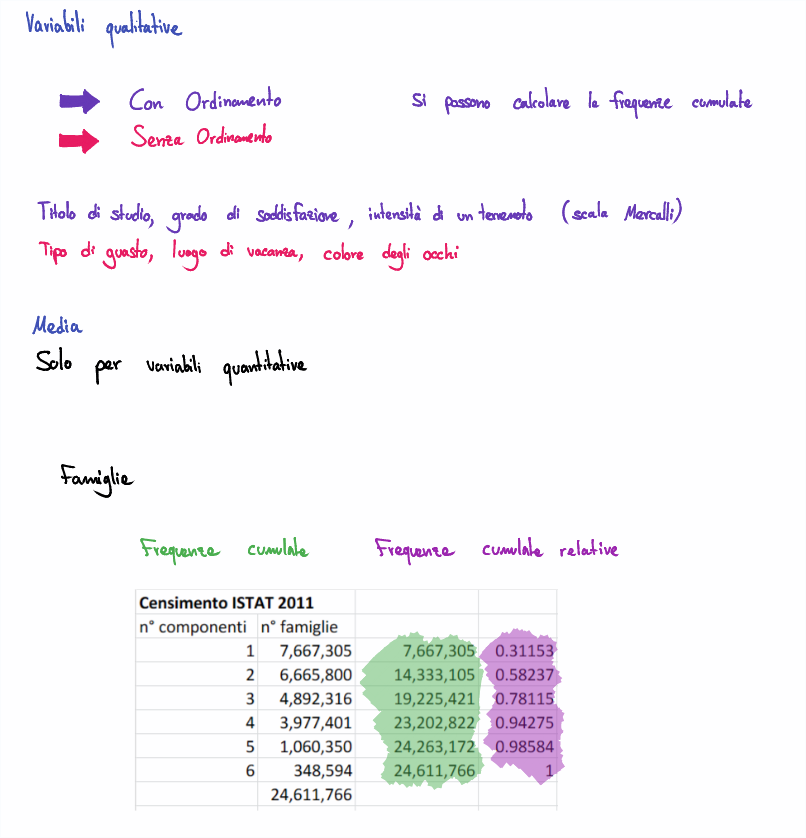 Variabili qualitative
Con Ordinamento Si possono calcolare le frequenze cumulate
Senza Ordinamento
Titolo di studio, grado di soddisfazione, intensità di un terremoto (scala Mercalli)
Tipo di guasto, luogo di vacanza, colore degli occhi
Media
Solo per variabili quantitative
Famiglie
Frequenze cumulate Frequenze cumulate relative
Censimento ISTAT 2011
n° componenti n° famiglie
1 7,667,305 7,667,305 0.31153
2 6,665,800 14,333,105 0.58237
3 4,892,316 19,225,421 0.78115
4 3,977,401 23,202,822 0.94275
5 1,060,350 24,263,172 0.98584
6 348,594 24,611,766 1
24,611,766